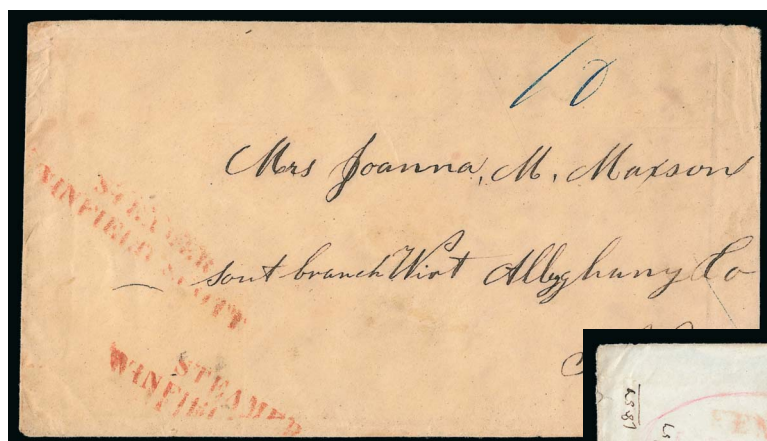 10
Mrs Joanna, M. Maxson
sout branch Wirt Alleghany Co
STEAMER
WINFIELD SCOTT
STEAMER
WINFIE